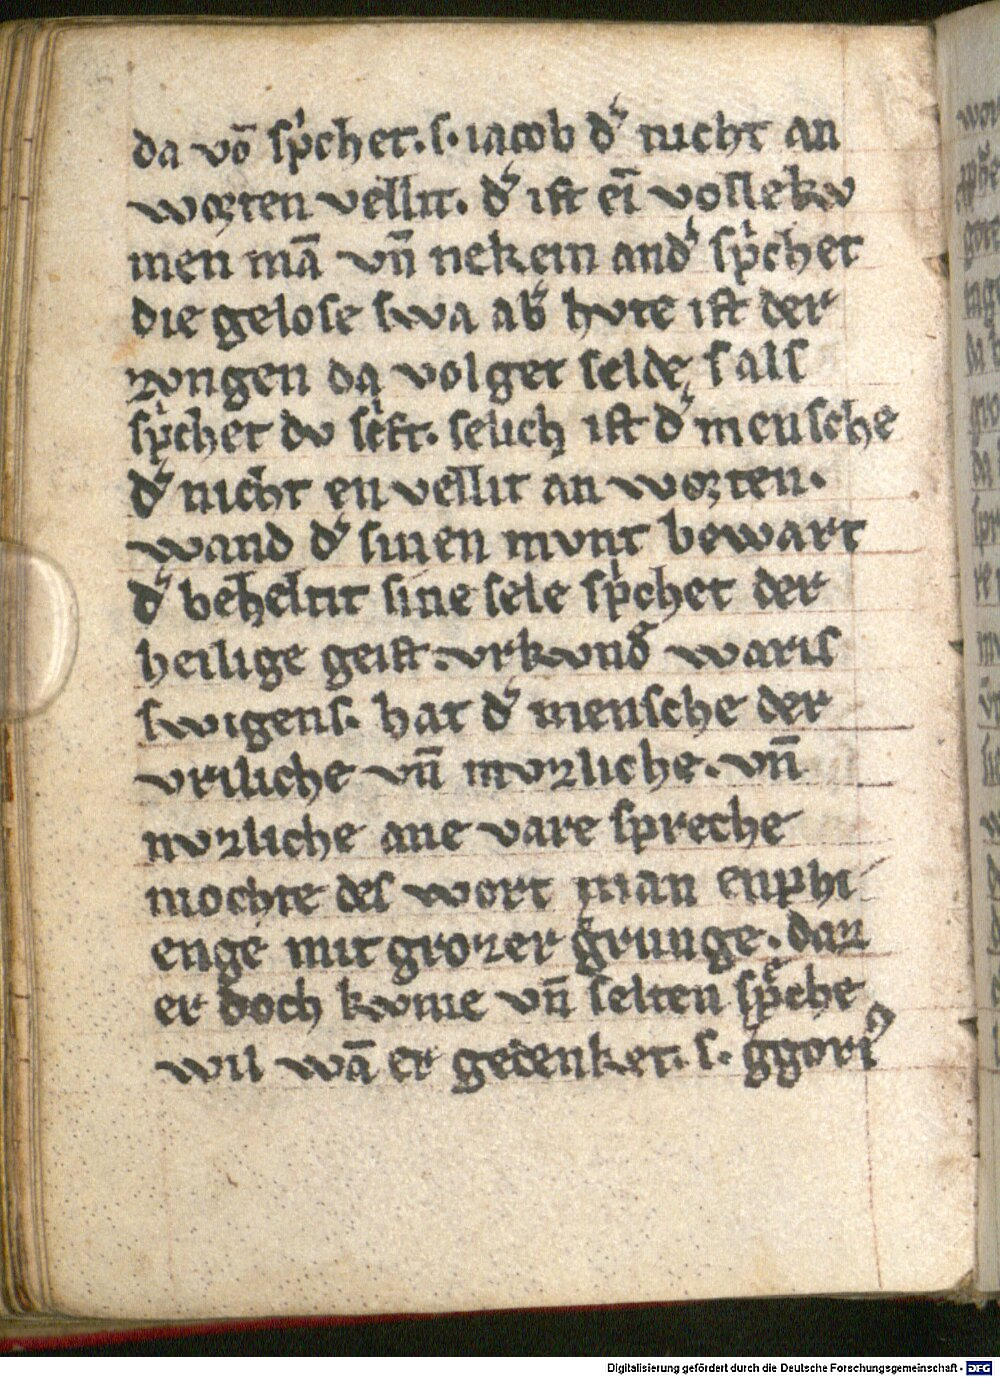 da vō sp̄chet. s. iacob d͛ nicht an
worten vellit. d͛ ist eī volleku
men mā vn̄ nekein and͛ sp̄chet
die gelose swa ab͛ hvte ist der
zvngen da volget selde. s als
sp̄chet dv sc͛ft. selich ist d͛ mensche
d͛ nicht en vellit an worten.
wand d͛ sinen mvnt bewart
d͛ beheltit sine sele sp̄chet der
heilige geist. vrkvnd͛ waris
swigens. hat d͛ mensche der
vriliche vn̄ mvzliche. vn̄
nvzliche ane vare spreche
mochte des wort man enphi
enge mit grozer g͛unge. daz
er doch kvme vn̄ selten sp͛che
wil wā er gedenket. s. g͛gori᷒
Digitalisierung gefördert durch die Deutsche Forschungsgemeinschaft - DFG